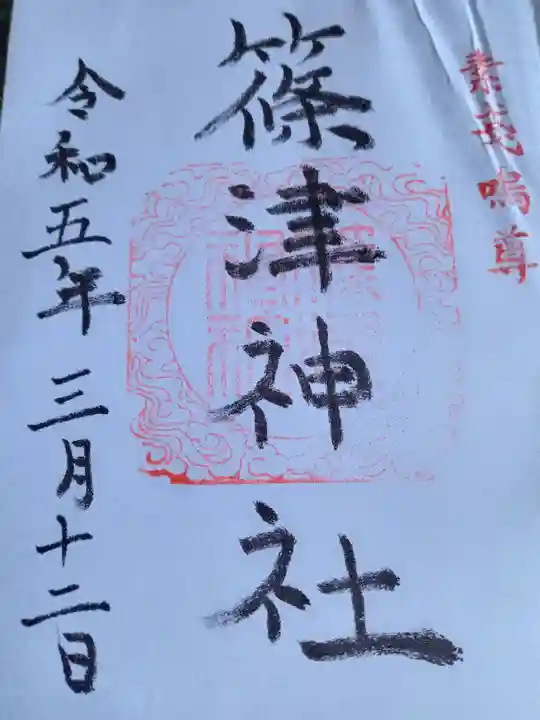 素戔嗚尊
篠津神社
令和五年三月十二日